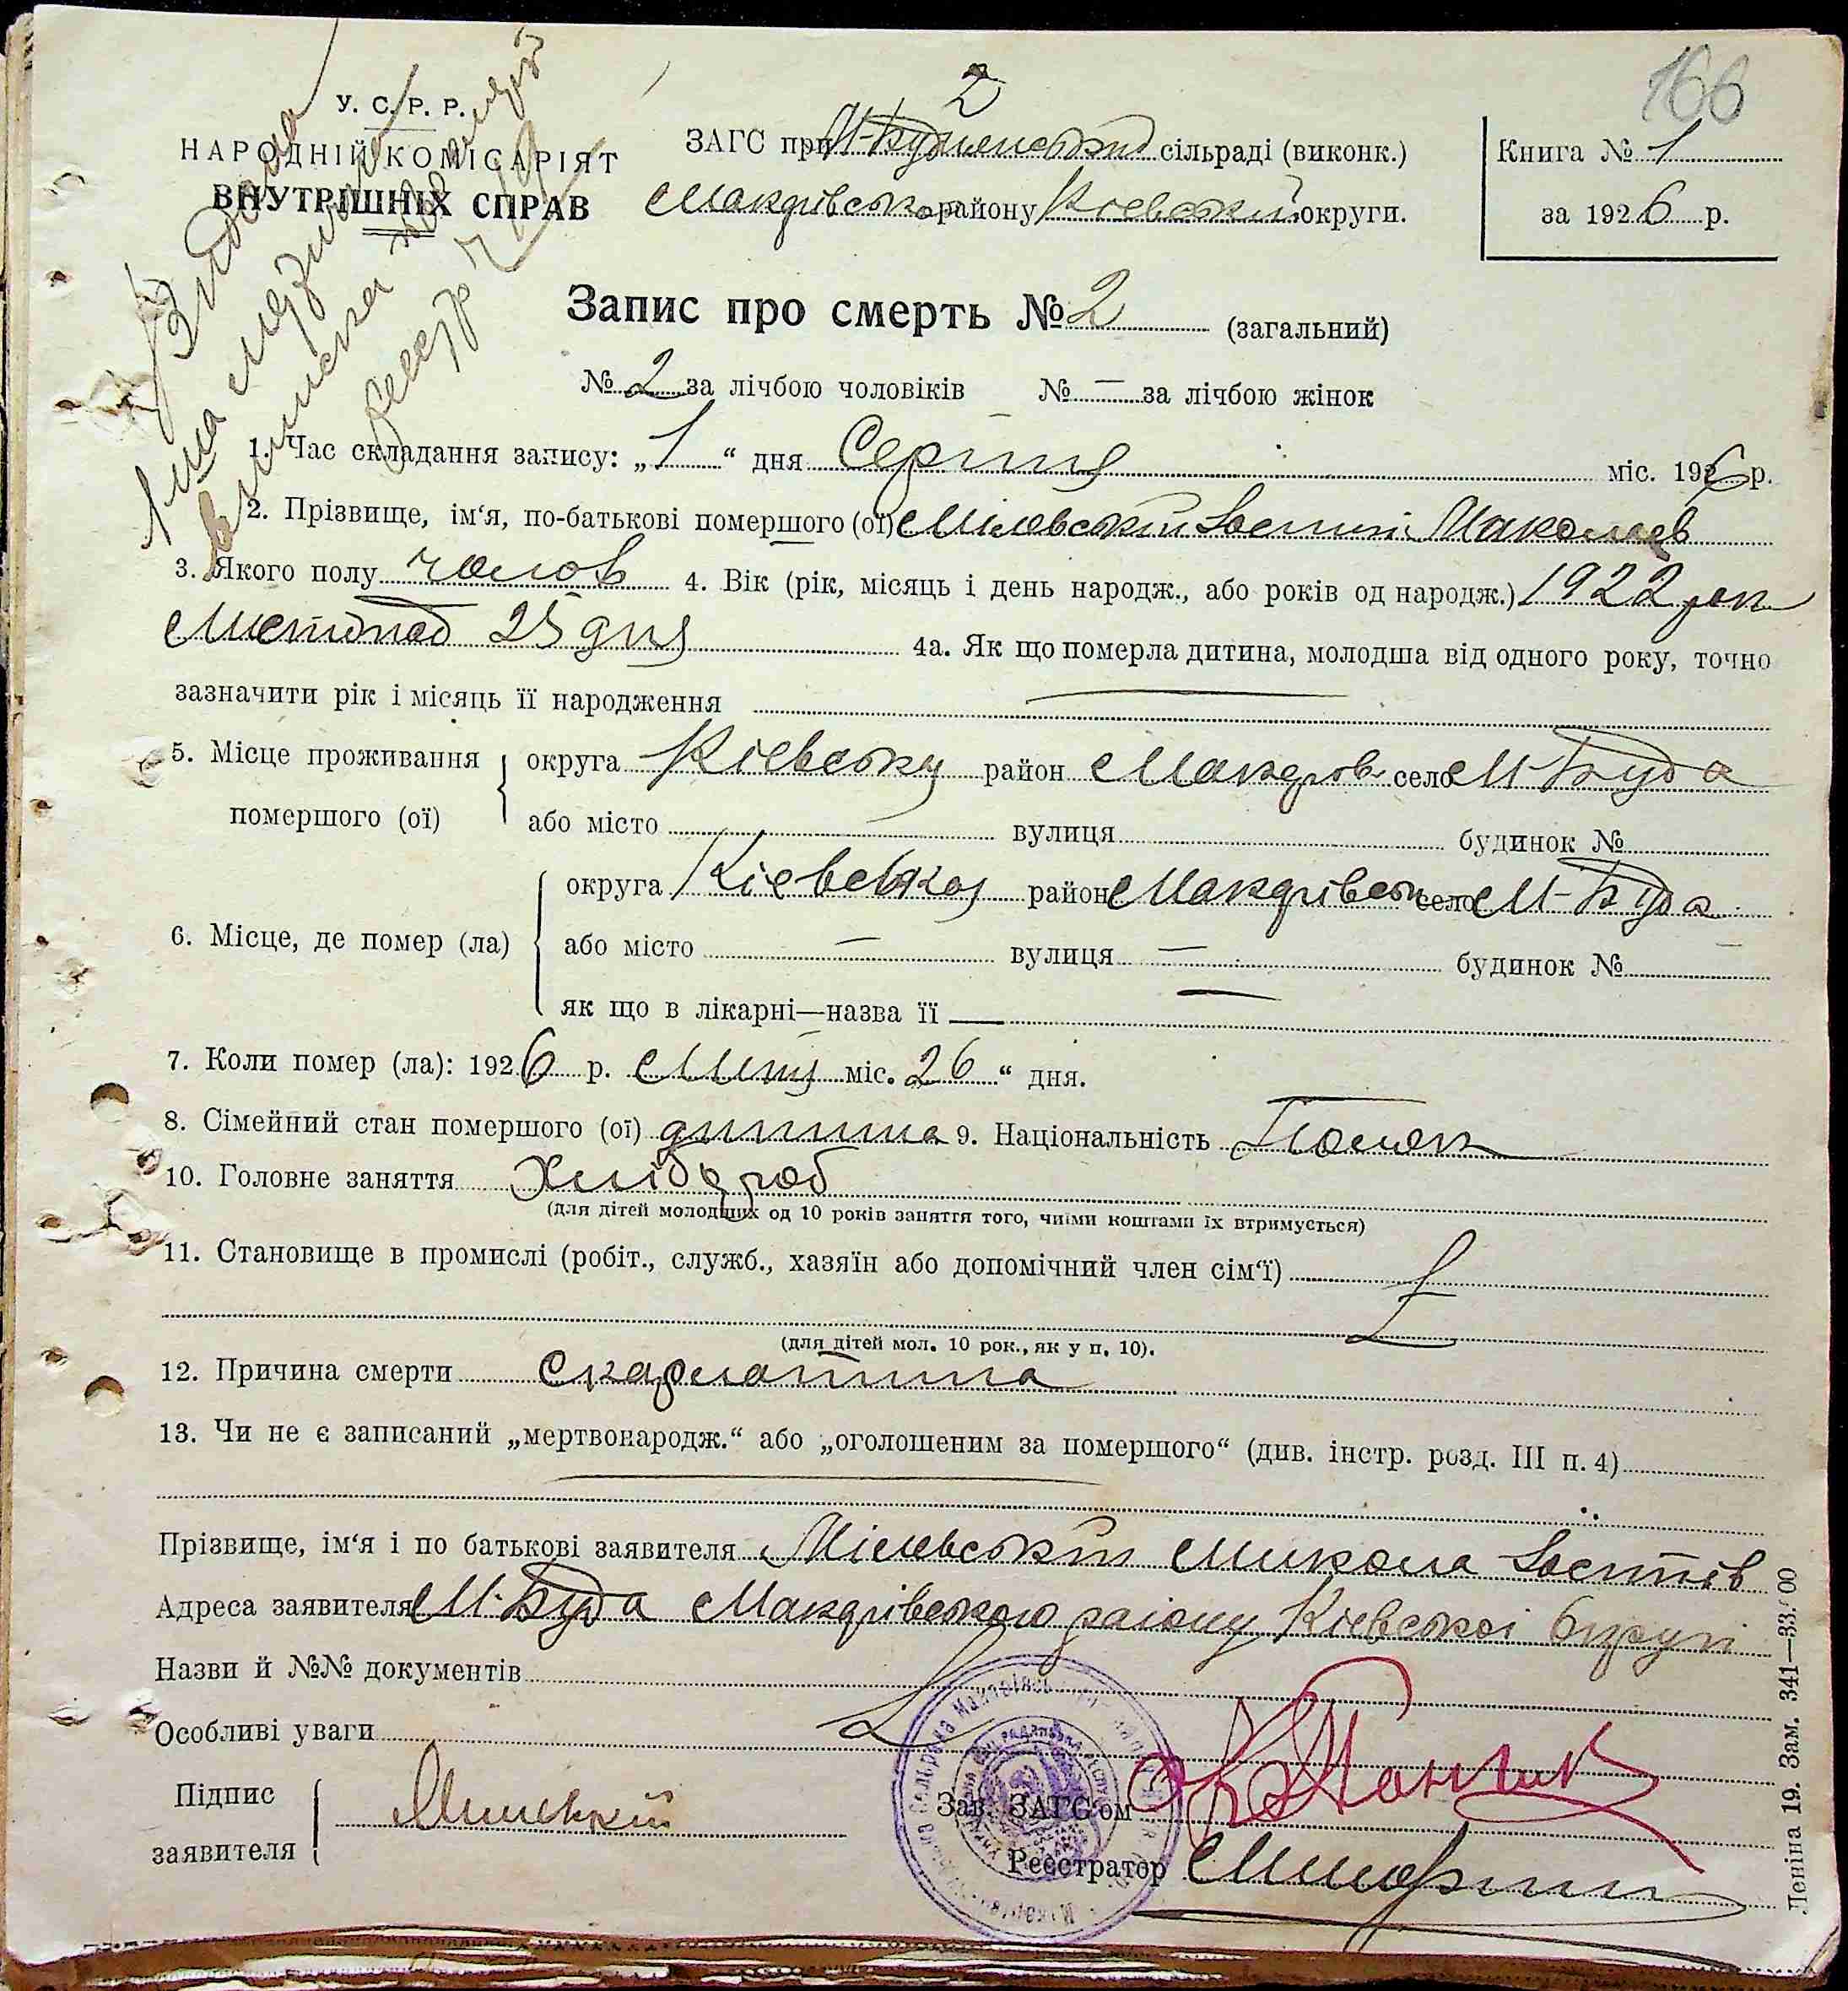 166
У. С. Р. Р.
НАРОДНІЙ КОМІСАРІЯТ
ВНУТРІШНІХ СПРАВ
2
ЗАГС при сільраді (виконк.)
Макарівсько району Кіевськой округи.
Книга № 1
за 1926 р.
Видана
Запис про смерть № 2 (загальний)
№ 2 за лічбою чоловіків № — за лічбою жінок
1. Час складання запису: „1“ дня Серпня міс. 1926 р.
2. Прізвище, ім‘я, по-батькові помершого (ої) Мілевскій Іосип
3. Якого полу чолов 4. Вік (рік, місяць і день народж., або років од народж.) 1922 рок
Листопад 25 дня 4а. Як що померла дитина, молодша від одного року, точно
зазначити рік і місяць її народження
5. Місце проживання округа Кіевська район Макарів село М-Буда
помершого (ої) або місто вулиця будинок №
6. Місце, де помер (ла) округа Кіевська район Макарівськ село М-Буда
або місто — вулиця — будинок №
як що в лікарні—назва її —
7. Коли помер (ла): 1926 р. Липня міс. 26 “ дня.
8. Сімейний стан помершого (ої) дитина 9. Національність Поляк
10. Головне заняття Хлібороб
(для дітей молодших од 10 років заняття того, чиїми коштами їх втримується)
11. Становище в промислі (робіт., служб., хазяїн або допомічний член сім‘ї)
(для дітей мол. 10 рок., як у п. 10).
12. Причина смерти Скарлатина
13. Чи не є записаний „мертвонародж.“ або „оголошеним за помершого“ (див. інстр. розд. III п. 4)
Прізвище, ім‘я і по батькові заявителя Мілевскій Микола Іосипів
Адреса заявителя М-Буда Макарівського раіону Кіевськоі Округи
Назви й №№ документів
Особливі уваги
Підпис
заявителя
Зав. ЗАГС‘ом
Реєстратор
Леніна 19. Зам. 341—33.00